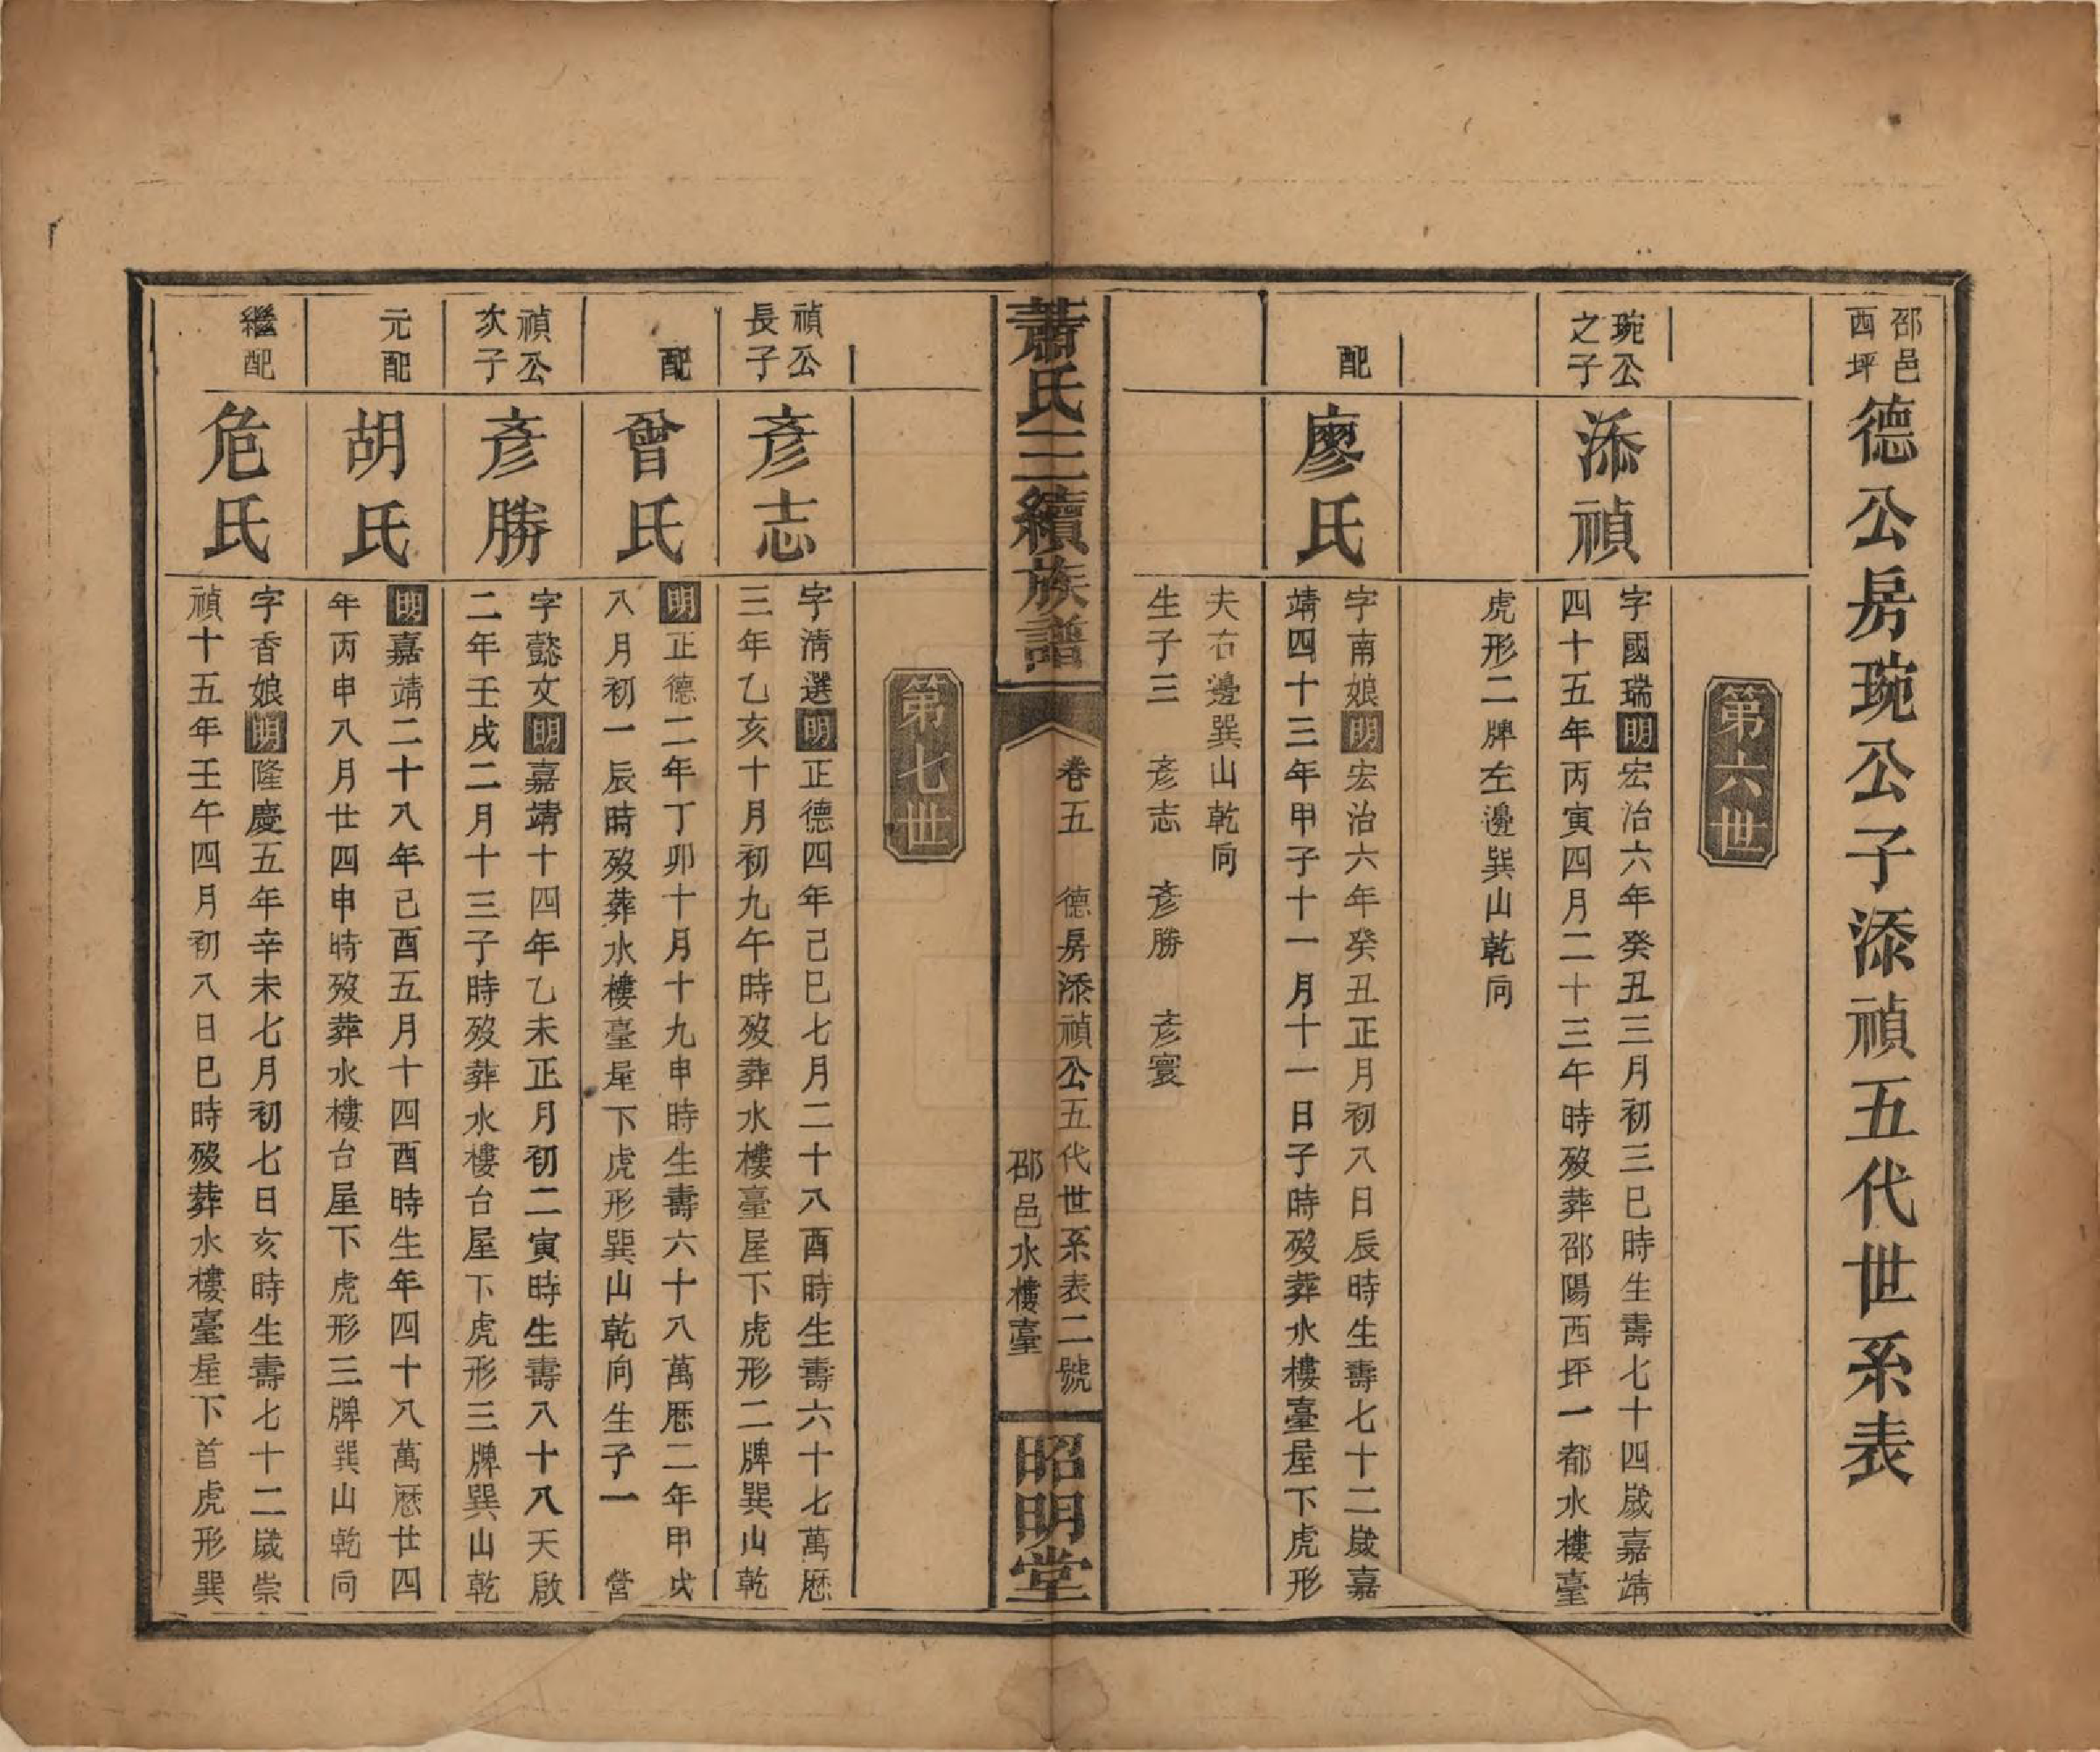 邵邑
西坪
德公房琬公子添禎五代世系表
第六世
琬公
之子
添禎
字國瑞明宏治六年癸丑三月初三巳時生壽七十四歲嘉靖
四十五年丙寅四月二十三午時歿葬邵陽西坪一都水樓臺
虎形二牌左邊巽山乾向
配
廖氏
字南娘明宏治六年癸丑正月初八日辰時生壽七十二歲嘉
靖四十三年甲子十一月十一日子時歿葬水樓臺屋下虎形
夫右邊巽山乾向
生子三 彥志 彥勝 彥寰
蕭氏三續族譜
卷五 德房添禎公五代世系表二號
邵邑水樓臺
昭明堂
第七世
禎公
長子
彥志
字淸選明正德四年己巳七月二十八酉時生壽六十七萬歷
三年乙亥十月初九午時歿葬水樓臺屋下虎形二牌巽山乾
配
曾氏
明正德二年丁卯十月十九申時生壽六十八萬歷二年甲戌
八月初一辰時歿葬水樓臺屋下虎形巽山乾向生子一 營
禎公
次子
彥勝
字懿文明嘉靖十四年乙未正月初二寅時生壽八十八天啟
二年壬戌二月十三子時歿葬水樓台屋下虎形三牌巽山乾
元配
胡氏
明嘉靖二十八年己酉五月十四酉時生年四十八萬歷廿四
年丙申八月廿四申時歿葬水樓台屋下虎形三牌巽山乾向
繼配
危氏
字香娘明隆慶五年辛未七月初七日亥時生壽七十二歲崇
禎十五年壬午四月初八日巳時歿葬水樓臺屋下首虎形巽